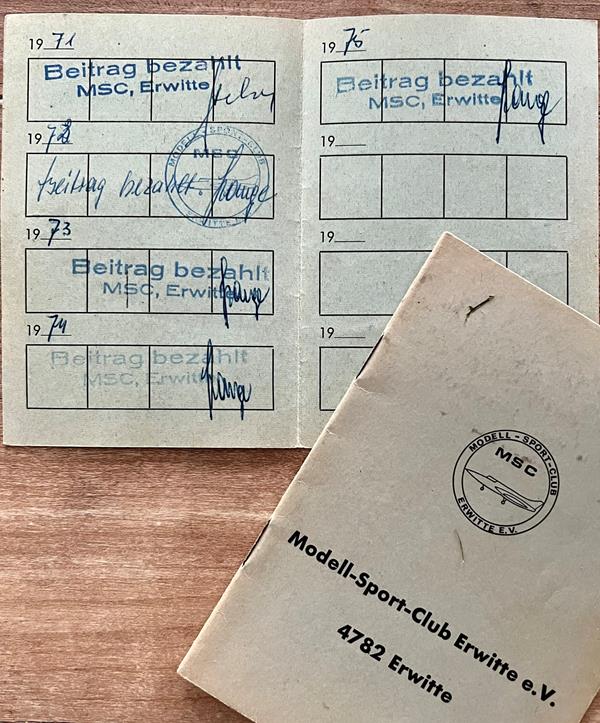 19 71
Beitrag bezahlt
MSC, Erwitte
19 72
MODELL-SPORT-CLUB
MSC
ERWITTE E.V.
Beitrag bezahlt.
19 73
Beitrag bezahlt
MSC, Erwitte
19 74
Beitrag bezahlt
MSC, Erwitte
19 75
Beitrag bezahlt
MSC, Erwitte
19
19
19
MODELL-SPORT-CLUB
MSC
ERWITTE E.V.
Modell-Sport-Club Erwitte e.V.
4782 Erwitte